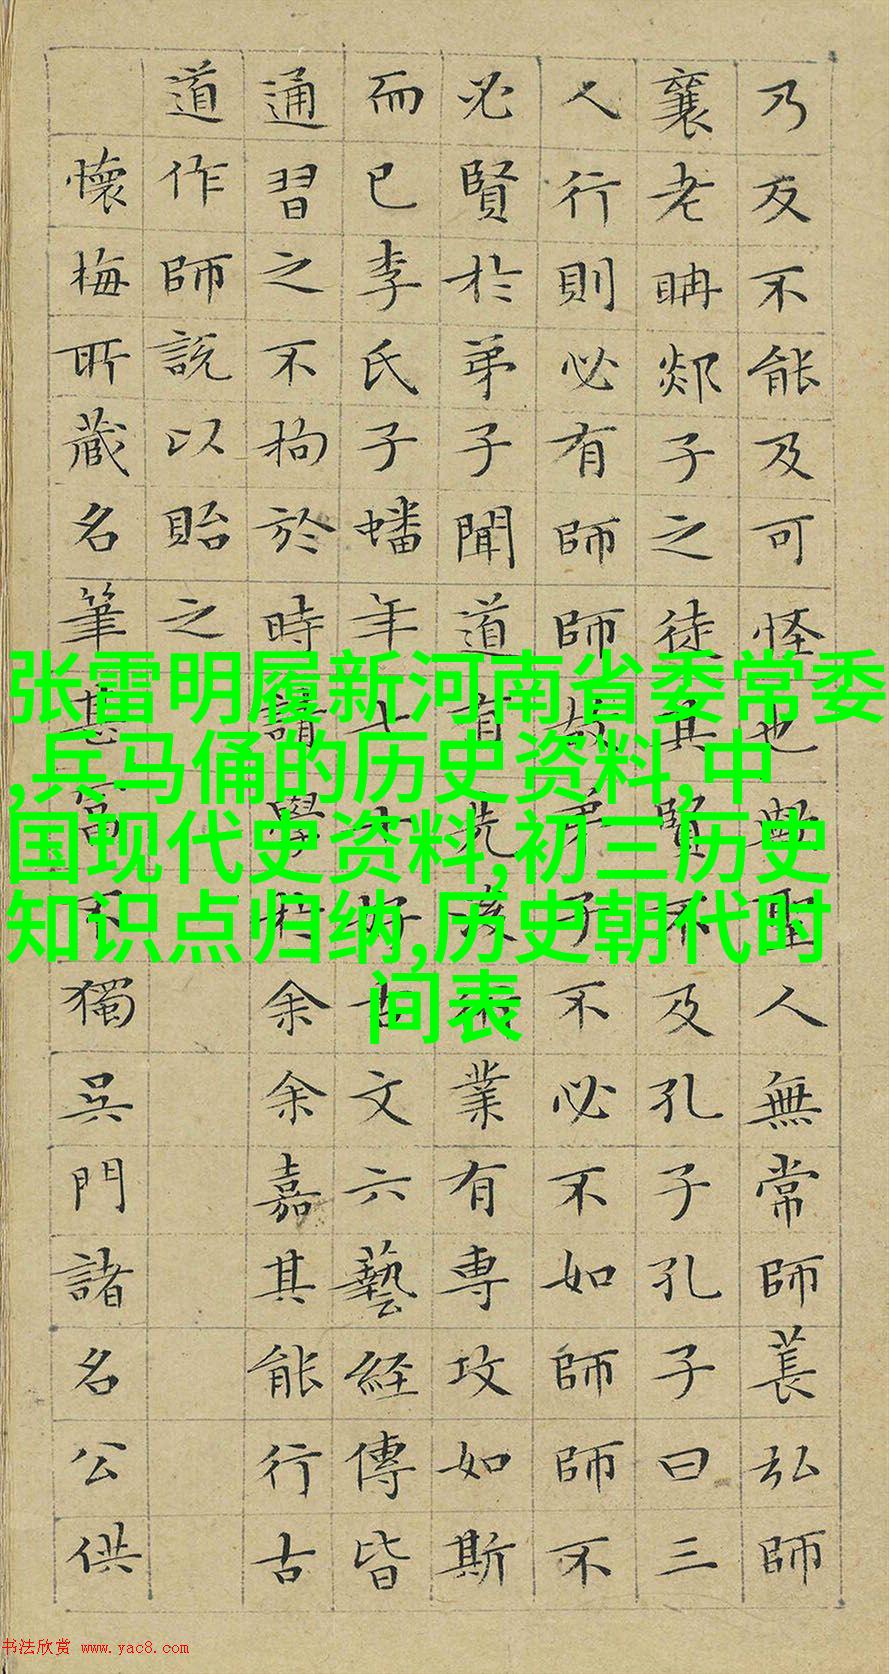 张雷明履新河南省委常委
,兵马俑的历史资料,中
国现代史资料,初三历史
知识点归纳,历史朝代时
间表
乃反不能及可怪也歟聖人無常師萇弘師
襄老聃郯子之徒其賢不及孔子孔子曰三
人行則必有師師故弟子不必不如師師不
必賢於弟子聞道有先後術業有專攻如斯
而已李氏子蟠年十七好古文六藝経傳皆
通習之不拘於時請學於余余嘉其能行古
道作師説以貽之
懷梅所藏名筆甚富不獨吳門諸名公供
书法欣赏 www.yac8.com